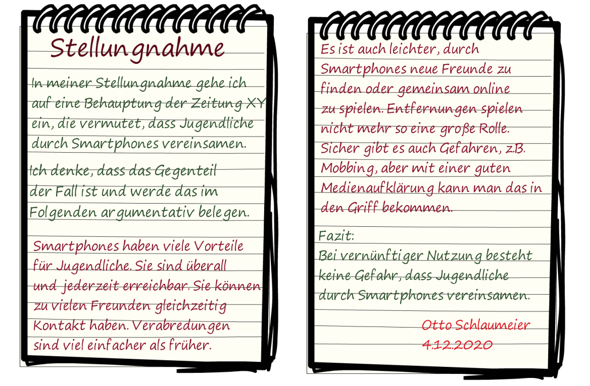 Stellungnahme
In meiner Stellungnahme gehe ich
auf eine Behauptung der Zeitung XY
ein, die vermutet, dass Jugendliche
durch Smartphones vereinsamen.
Ich denke, dass das Gegenteil
der Fall ist und werde das im
Folgenden argumentativ belegen.
Smartphones haben viele Vorteile
für Jugendliche. Sie sind überall
und jederzeit erreichbar. Sie können
zu vielen Freunden gleichzeitig
Kontakt haben. Verabredungen
sind viel einfacher als früher.
Es ist auch leichter, durch
Smartphones neue Freunde zu
finden oder gemeinsam online
zu spielen. Entfernungen spielen
nicht mehr so eine große Rolle.
Sicher gibt es auch Gefahren, z.B.
Mobbing, aber mit einer guten
Medienaufklärung kann man das in
den Griff bekommen.
Fazit:
Bei vernünftiger Nutzung besteht
keine Gefahr, dass Jugendliche
durch Smartphones vereinsamen.
Otto Schlaumeier
4.12.2020